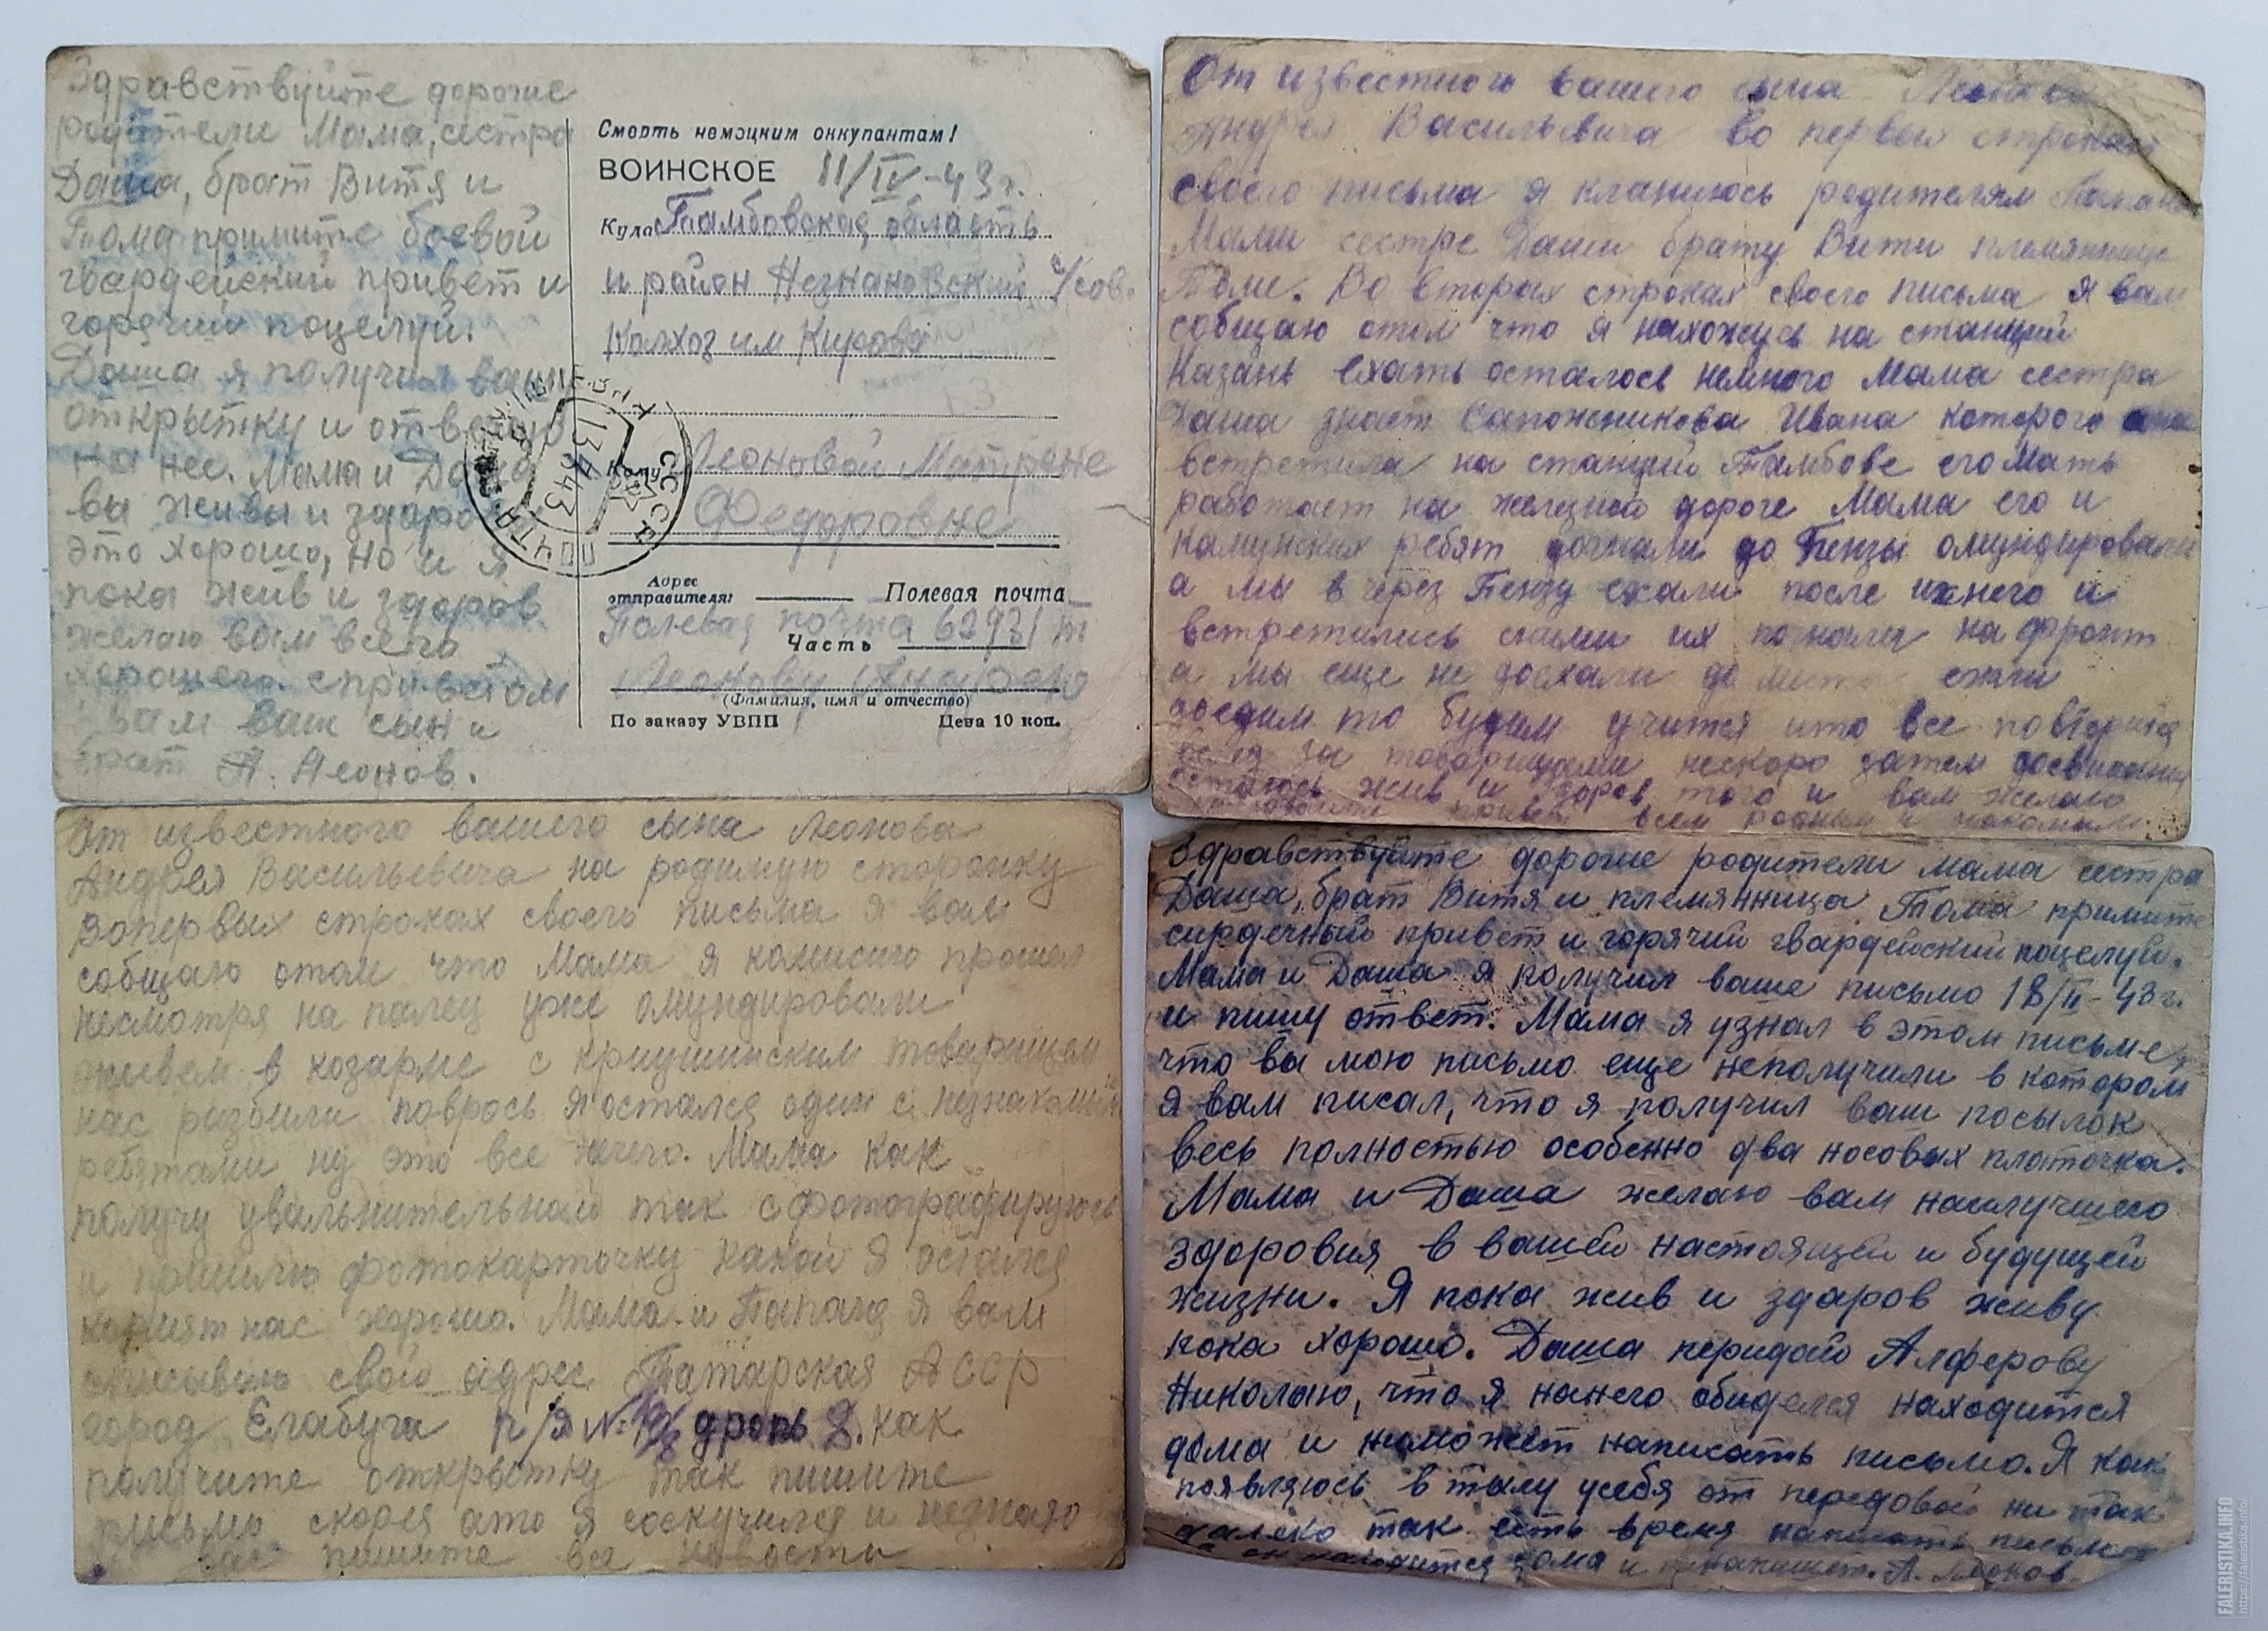 Здравствуйте дорогие
родители Мама, сестра
Даша, брат Витя и
Тома примите боевой
гвардейский привет и
горячий поцелуй.
Даша я получил вашу
открытку и отвечаю
на нее. Мама и Даша
вы живы и здоровы
это хорошо, но и я
пока жив и здоров
желаю вам всего
хорошего. с приветом
к вам ваш сын и
брат А. Леонов.
Смерть немецким оккупантам!
ВОИНСКОЕ 11/IV-43г.
Куда Тамбовская область
и район Незнановский с/сов.
Колхоз им Кирова
Кому Леоновой Матрене
Федоровне
ПОЧТА СССР
13 4 43
Адрес отправителя: Полевая почта
Полевая почта 62931 т
Часть
Леонову Андрею
(Фамилия, имя и отчество)
По заказу УВПП Цена 10 коп.
От известного вашего сына Леонова
Андрея Васильевича Во первых строках
своего письма я кланиюсь родителям
Мами сестре Даши брату Вити племяннице
Томе. Во вторых строках своего письма я вам
собщаю отом что я нахожусь на станций
Казань ехать осталось немного Мама сестра
Даша знает Сапожникова Ивана которого она
встретила на станций Тамбове его мать
работает на железной дороге Мама его и
ребят догнали до Пензы омундировали
а мы в через Пензу ехали после ихнего и
встретились сними их погнали на фронт
а мы еще не доехали до места если
доедим то будим учится ито все
за товарищами нескоро затем досвидания
остаюсь жив и здоров того и вам желаю
привет всем родным и знакомым.
От известного вашего сына Леонова
Андрея Васильевича на родимую сторонку
Вопервых строках своего письма я вам
собщаю отом что Мама я комисию прошел
несмотря на палец уже омундировали
живем в хозарме с криушинским товарищем
нас разбили поврось я остался один с незнакомыми
ребятами ну это все ничего. Мама как
получу увальнительнай так сфотографируюсь
и пришлю фотокарточку какой я остался
кормят нас хорошо. Мама и Папаня я вам
описываю свой адрес Татарская АССР
город Елабуга п/я № дробь 8. как
получите открытку так пишите
письмо скорея ато я соскучился и незнаю
пишите все новости
Здравствуйте дорогие родители мама сестра
Даша, брат Витя и племянница Тома примите
сирдечный привет и горячий гвардейский поцелуй.
Мама и Даша я получил ваше письмо 18/II-43г.
и пишу ответ. Мама я узнал в этом письме,
что вы мою письмо еще неполучили в котором
я вам писал, что я получил ваш посылок
весь полностью особенно два носовых платочка.
Мама и Даша желаю вам наилучшего
здоровия в вашей настоящей и будущей
жизни. Я пока жив и здаров живу
пока хорошо. Даша передай Алферову
Николаю, что я нанего обиделся находится
дома и неможет написать письмо. Я как
появляюсь в тылу усебя от передовой не так
далеко так есть время написать письмо
а он находится дома и ненапишет. А. Леонов
FALERISTIKA.INFO
https://faleristika.info/